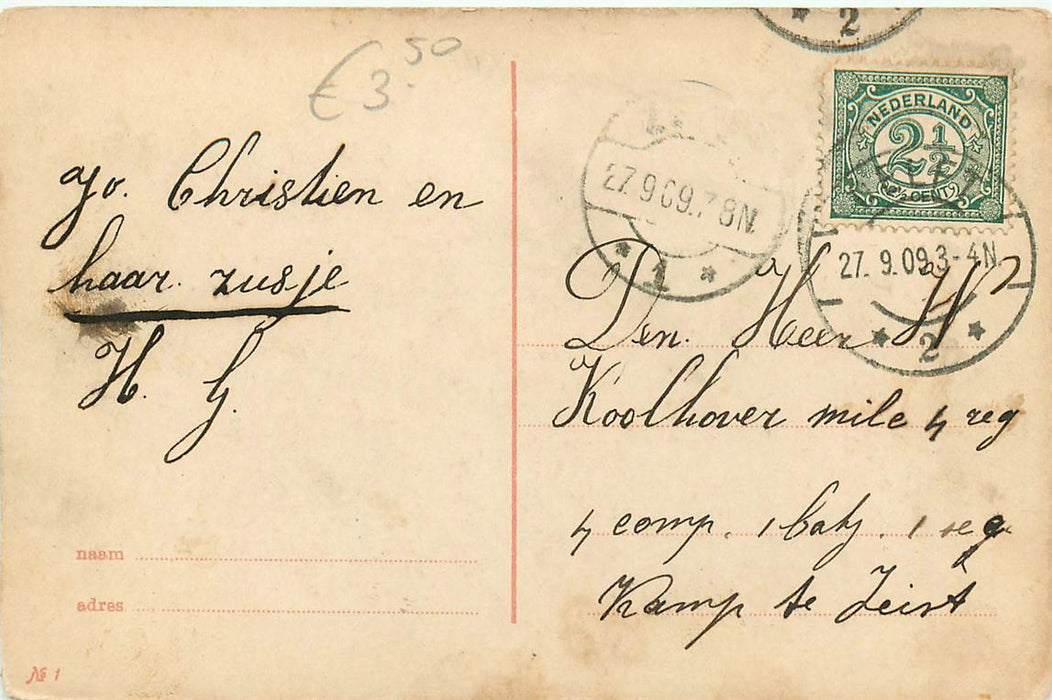 2
€ 3.50
NEDERLAND
2½
2½ CENT
27.9.09.7-8N.
* 1 *
27. 9.09.3-4N.
* 2 *
Jo. Christien en
haar. zusje
H. G.
Den. Heer H
Koolhover mile 4 reg
4 comp. 1 Batj. 1 reg
Kamp te Zeist
naam
adres
№ 1